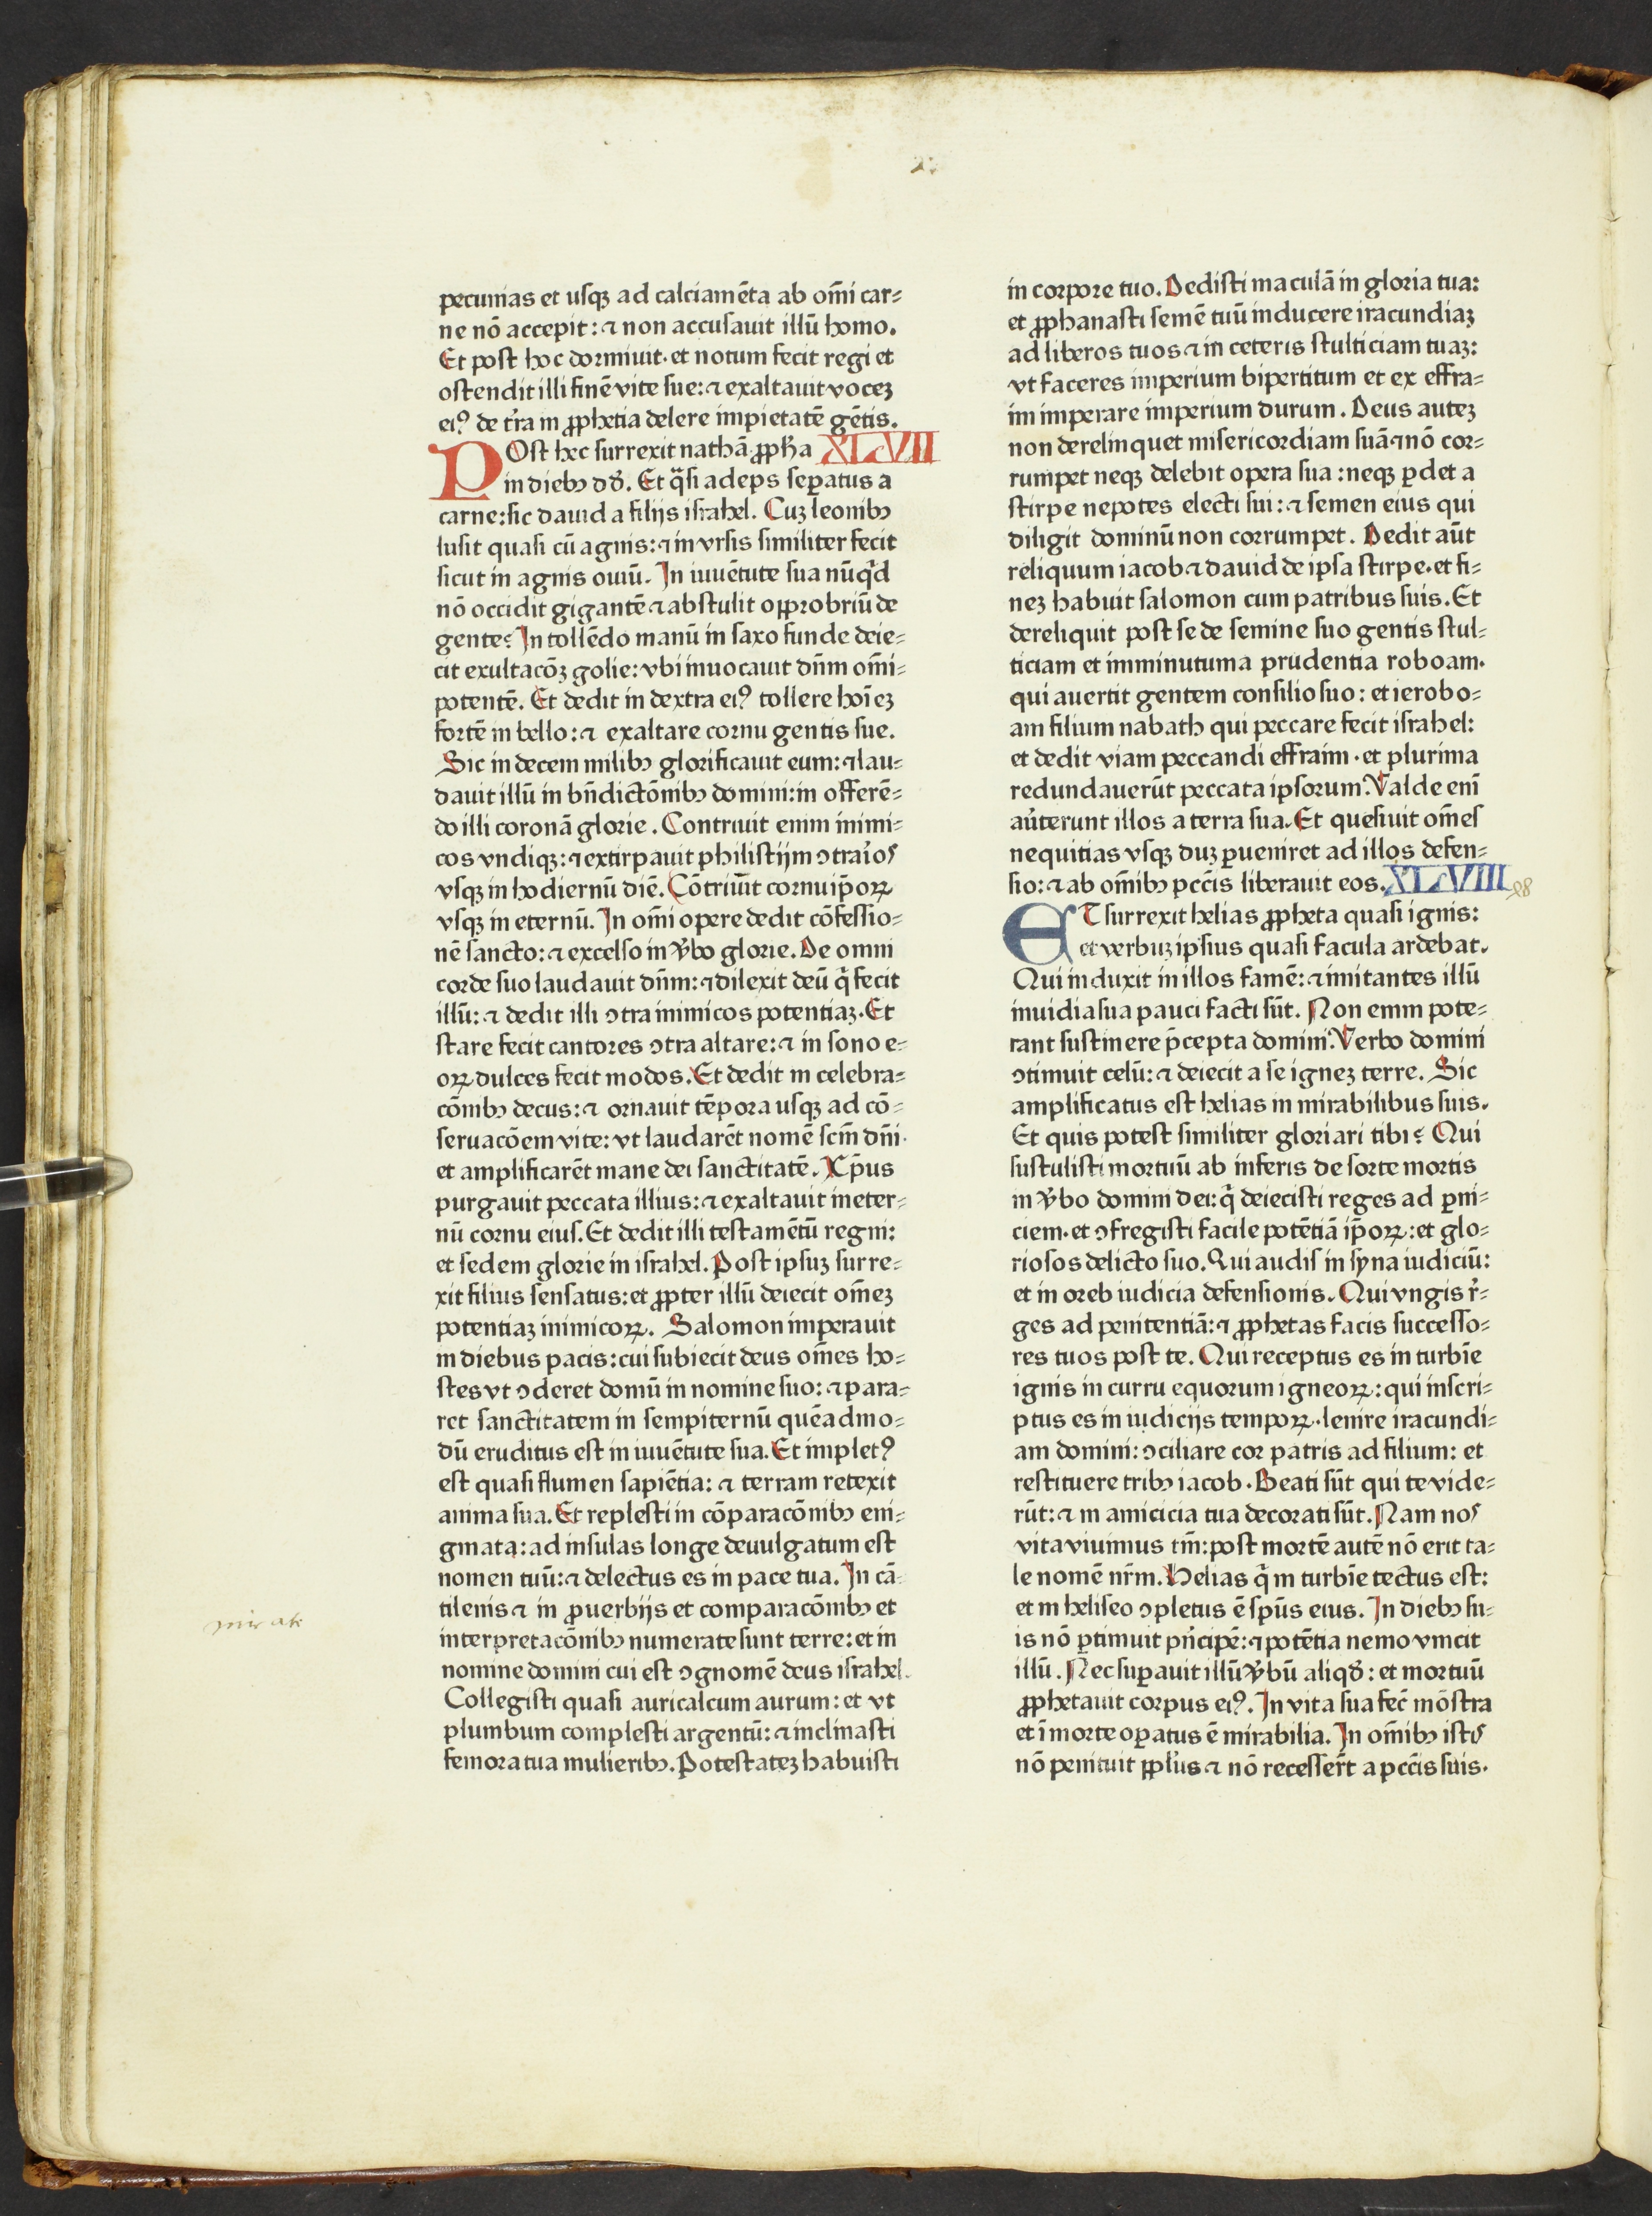 pecunias et usqꝫ ad calciamēta ab om̄i car⸗
ne nō accepit: ⁊ non accusauit illū homo.
Et post hoc dormiuit· et notum fecit regi et
ostendit illi finē vite sue: ⁊ exaltauit vocez
eiꝰ de t̉ra in ꝓphetia delere impietatē gētis.
POst hec surrexit nathā ꝓph̄a XLVII
in diebꝫ dd̄. Et q̄si adeps seꝑatus a
carne: sic dauid a filijs israhel. Cuz leonibꝫ
lusit quasi cū agnis: ⁊ in vrsis similiter fecit
sicut in agnis ouiū. In iuuētute sua nūq̇d
nō occidit gigantē ⁊ abstulit opprobriū de
gente? In tollēdo manū in saxo funde deie⸗
cit exultacōꝫ golie: vbi inuocauit dn̄m om̄i⸗
potentē. Et dedit in dextra eiꝰ tollere hoīez
fortē in bello: ⁊ exaltare cornu gentis sue.
Sic in decem milibꝫ glorificauit eum: ⁊ lau⸗
dauit illū in bn̄dictōnibꝫ domini: in offerē⸗
do illi coronā glorie. Contriuit enim inimi⸗
cos vndiqꝫ: ⁊ extirpauit philistijm ↄtra̍ios
vsqꝫ in hodiernū diē. Cōtriuit cornu ip̄oꝝ
vsqꝫ in eternū. In om̄i opere dedit cōfessio⸗
nē sancto: ⁊ excelso in v̉bo glorie. De omni
corde suo laudauit dn̄m: ⁊ dilexit deū q̄ fecit
illū: ⁊ dedit illi ↄtra inimicos potentiaz. Et
stare fecit cantores ↄtra altare: ⁊ in sono e⸗
oꝝ dulces fecit modos. Et dedit in celebra⸗
cōnibꝫ decus: ⁊ ornauit tēpora usqꝫ ad cō⸗
seruacōem vite: vt laudarēt nomē scm̄ dn̄i·
et amplificarēt mane dei sanctitatē. Xp̄us
purgauit peccata illius: ⁊ exaltauit in eter⸗
nū cornu eius. Et dedit illi testamētū regni:
et sedem glorie in israhel. Post ipsuz surre⸗
xit filius sensatus: et ꝓpter illū deiecit om̄ez
potentiaz inimicoꝝ. Salomon imperauit
in diebus pacis: cui subiecit deus om̄es ho⸗
stes vt ↄderet domū in nomine suo: ⁊ para⸗
ret sanctitatem in sempiternū quēadmo⸗
dū eruditus est in iuuētute sua. Et impletꝰ
est quasi flumen sapiētia: ⁊ terram retexit
anima sua. Et replesti in cōparacōnibꝫ eni⸗
gmata: ad insulas longe deuulgatum est
nomen tuū: ⁊ delectus es in pace tua. In cā⸗
tilenis ⁊ in ꝓuerbijs et comparacōnibꝫ et
interpretacōnibꝫ numerate sunt terre: et in
nomine domini cui est ↄgnomē deus israhel.
Collegisti quasi auricalcum aurum: et vt
plumbum complesti argentū: ⁊ inclinasti
femora tua mulieribꝫ. Potestatez habuisti
mirak
in corpore tuo. Dedisti maculā in gloria tua:
et ꝓphanasti semē tuū inducere iracundiaz
ad liberos tuos ⁊ in ceteris stulticiam tuaz:
vt faceres imperium bipertitum et ex effra⸗
im imperare imperium durum. Deus autez
non derelinquet misericordiam suā ⁊ nō cor⸗
rumpet neqꝫ delebit opera sua: neqꝫ ꝑdet a
stirpe nepotes electi sui: ⁊ semen eius qui
diligit dominū non corrumpet. Dedit aūt
reliquum iacob ⁊ dauid de ipsa stirpe. et fi⸗
nez habuit salomon cum patribus suis. Et
dereliquit post se de semine suo gentis stul⸗
ticiam et imminutum a prudentia roboam·
qui auertit gentem consilio suo: et ierobo⸗
am filium nabath qui peccare fecit israhel:
et dedit viam peccandi effraim· et plurima
redundauerūt peccata ipsorum. Valde enī
au̍terunt illos a terra sua. Et quesiuit om̄es
nequitias vsqꝫ duz ꝑueniret ad illos defen⸗
sio: ⁊ ab om̄ibꝫ pccīs liberauit eos. XLVIIII 48
ET surrexit helias ꝓpheta quasi ignis:
et verbuz ipsius quasi facula ardebat.
Qui induxit in illos famē: ⁊ imitantes illū
inuidia sua pauci facti sūt. Non enim pote⸗
rant sustinere p̄cepta domini. Verbo domini
ↄtinuit celū: ⁊ deiecit a se ignez terre. Sic
amplificatus est helias in mirabilibus suis.
Et quis potest similiter gloriari tibi? Qui
sustulisti mortuū ab inferis de sorte mortis
in v̉bo domini dei: q̄ deiecisti reges ad ꝑni⸗
ciem· et ↄfregisti facile potētiā ip̄oꝝ: et glo⸗
riosos delicto suo. Qui audis in syna iudiciū:
et in oreb iudicia defensionis. Qui vngis r̉⸗
ges ad penitentiā: ⁊ ꝓphetas facis successo⸗
res tuos post te. Qui receptus es in turbīe
ignis in curru equorum igneoꝝ: qui inscri⸗
ptus es in iudicijs tempoꝝ· lenire iracundi⸗
am domini: ↄciliare cor patris ad filium: et
restituere tribꝫ iacob. Beati sūt qui te vide⸗
rūt: ⁊ in amicicia tua decorati sūt. Nam nos
vita viuimus tm̄: post mortē autē nō erit ta⸗
le nomē nr̄m. Helias q̄ in turbīe tectus est:
et in heliseo ↄpletus ē spūs eius. In diebꝫ su⸗
is nō ꝑtimuit pn̍cipē: ⁊ potētia nemo vincit
illū. Nec suꝑauit illū v̉bū aliqd̄: et mortuū
ꝓphetauit corpus eiꝰ. In vita sua fec̄ mōstra
et ī morte oꝑatus ē mirabilia. In om̄ibꝫ istis
nō penituit ppl̍us ⁊ nō recesser̄t a pccīs suis.